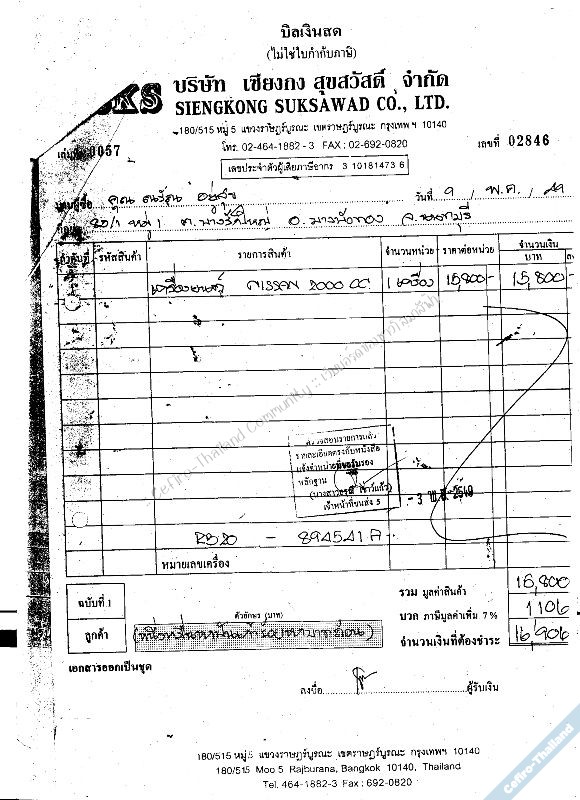 บิลเงินสด
(ไม่ใช่ใบกำกับภาษี)
SKS บริษัท เชียงกง สุขสวัสดิ์ จำกัด
SIENGKONG SUKSAWAD CO., LTD.
180/515 หมู่ 5 แขวงราษฎร์บูรณะ เขตราษฎร์บูรณะ กรุงเทพฯ 10140
โทร. 02-464-1882-3 FAX : 02-692-0820
0057
เลขที่ 02846
เลขประจำตัวผู้เสียภาษีอากร 3 10181473 6
คุณ
วันที่ 9 / พ.ค. / 49
80/1 หมู่ 1 ต.บางรักใหญ่ อ.บางบัวทอง จ.นนทบุรี
ลำดับที่ รหัสสินค้า รายการสินค้า จำนวนหน่วย ราคาต่อหน่วย จำนวนเงิน
บาท
เครื่องยนต์ NISSAN 2000 CC 1 เครื่อง 15,800- 15,800-
Cefiro-Thailand Community ::
ตรวจสอบรายการแล้ว
รายละเอียดตรงกับหนังสือ
หลักฐาน
เจ้าหน้าที่ขนส่ง 5
RB20 - 894541A
หมายเลขเครื่อง
ฉบับที่ 1
ลูกค้า
ตัวอักษร (บาท)
รวม มูลค่าสินค้า 15,800
บวก ภาษีมูลค่าเพิ่ม 7% 1106
จำนวนเงินที่ต้องชำระ 16,906
เอกสารออกเป็นชุด
ลงชื่อ ผู้รับเงิน
180/515 หมู่ 5 แขวงราษฎร์บูรณะ เขตราษฎร์บูรณะ กรุงเทพฯ 10140
180/515 Moo 5 Rajburana, Bangkok 10140, Thailand
Tel. 464-1882-3 Fax : 692-0820
Cefiro-Thailand